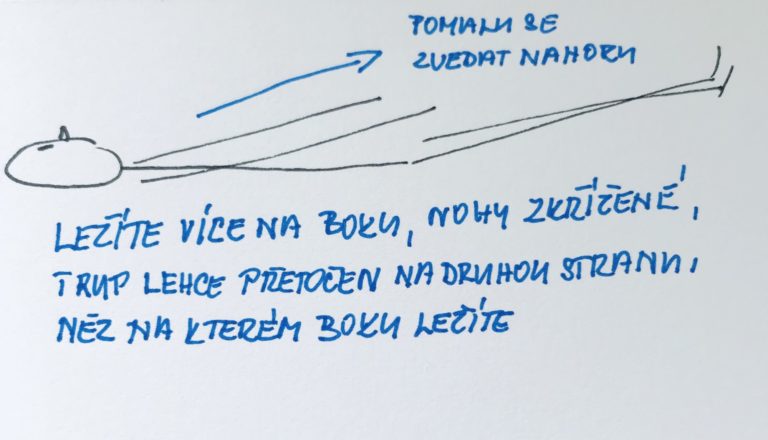 POMALU SE
ZVEDAT NAHORU
LEŽÍTE VÍCE NA BOKU, NOHY ZKŘÍŽENÉ,
TRUP LEHCE PŘETOČEN NA DRUHOU STRANU,
NĚŽ NA KTERÉM BOKU LEŽÍTE